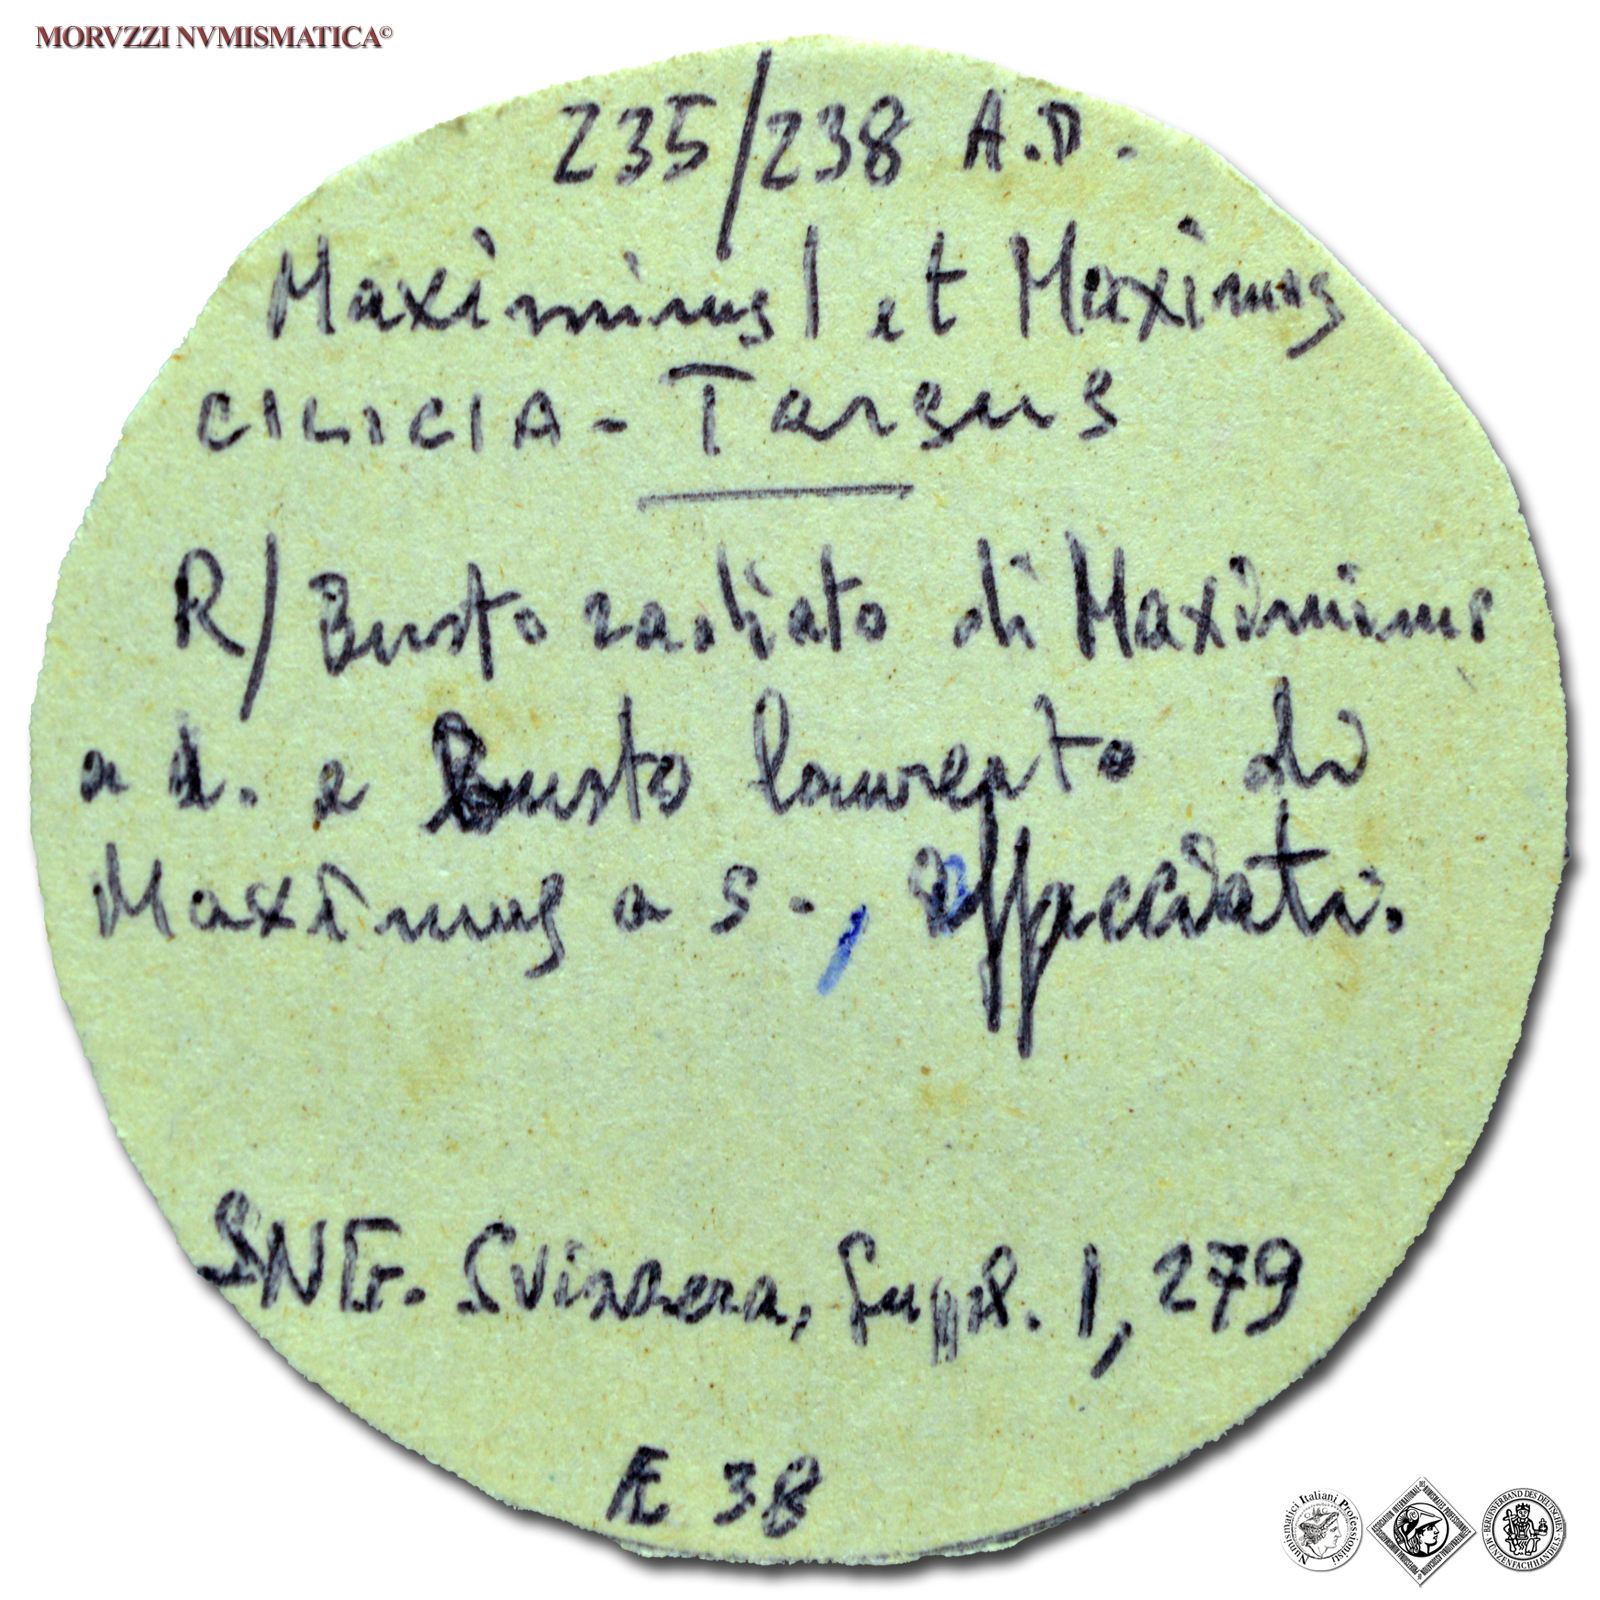 MORVZZI NVMISMATICA©
235/238 A.D.
Maximinus I et Maximus
CILICIA - Tarsus
R/ Busto radiato di Maximinus
a d. e Busto laureato di
Maximus a s., affacciati.
SNG. Svizzera, Suppl. 1, 279
Æ 38
Numismatici Italiani Professionisti
BERUFSVERBAND DES DEUTSCHEN MÜNZENFACHHANDELS